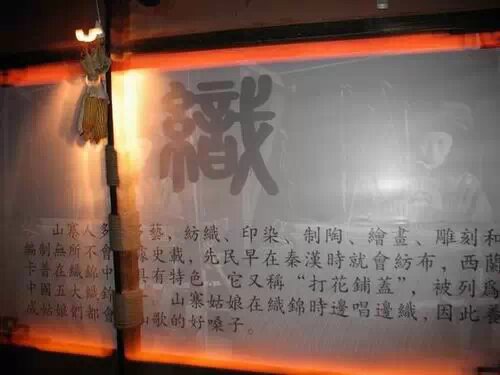 織
山寨人多 多藝，紡織、印染、制陶、繪畫、雕刻和
編制無所不會 據史載，先民早在秦漢時就會紡布，西蘭
卡普在織錦中 具有特色 它又稱“打花鋪蓋”，被列爲
中國五大織錦 山寨姑娘在織錦時邊唱邊織，因此養
成姑娘們都會 山歌的好嗓子。